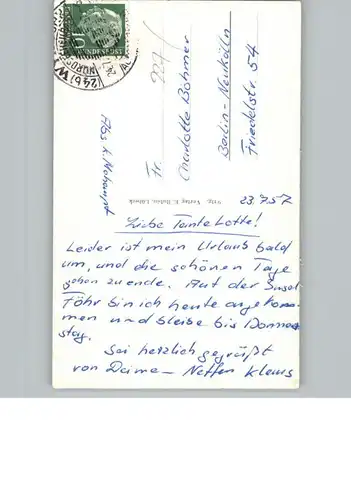 10
DEUTSCHE BUNDESPOST
(24b) W
Fr.
Charlotte Böhmer
Berlin-Neukölln
Friedelstr. 54
Abs K. Mohaupt
23.7.57
Liebe Tante Lotte!
Leider ist mein Urlaub bald
um, und die schönen Tage
gehen zu ende. Auf der Insel
Föhr bin ich heute angekom-
men und bleibe bis Donners-
tag.
Sei herzlich gegrüßt
von Deime- Neffen Klaus